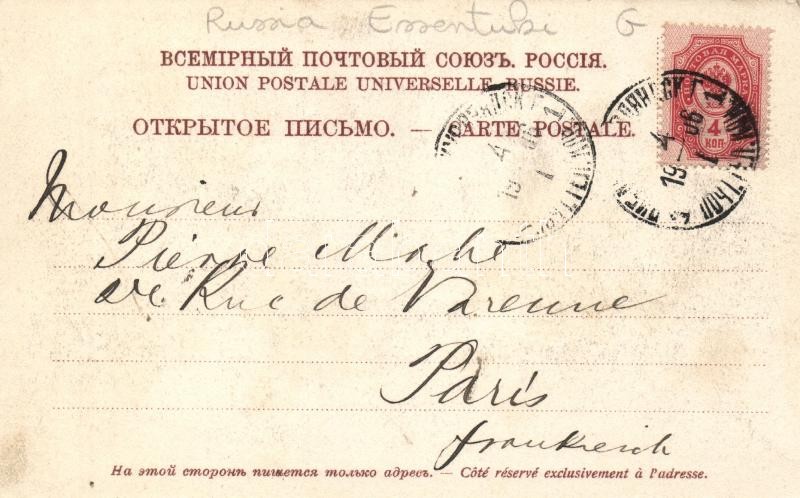 Russia Essentuki G
ВСЕМІРНЫЙ ПОЧТОВЫЙ СОЮЗЪ. РОССІЯ.
UNION POSTALE UNIVERSELLE. RUSSIE.
ОТКРЫТОЕ ПИСЬМО. — CARTE POSTALE.
ПОЧТОВАЯ МАРКА
4
КОП.
19 - 4
06
1
19 - 4
06
1
Monsieur
Pierre Mahe
Rue de Varenne
Paris
Frankreich
На этой сторонѣ пишется только адресъ. — Côté réservé exclusivement à l'adresse.